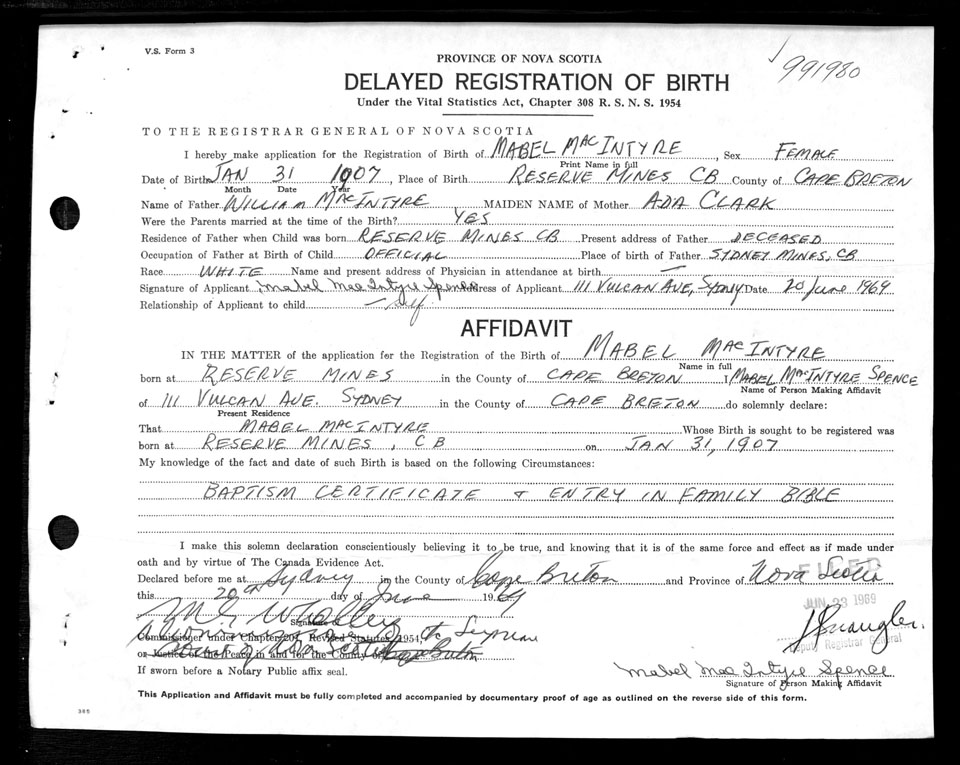 V.S. Form 3
991980
PROVINCE OF NOVA SCOTIA
DELAYED REGISTRATION OF BIRTH
Under the Vital Statistics Act, Chapter 308 R. S. N. S. 1954
TO THE REGISTRAR GENERAL OF NOVA SCOTIA
I hereby make application for the Registration of Birth of MABEL MACINTYRE, Sex FEMALE
Print Name in full
Date of Birth JAN 31 1907, Place of Birth RESERVE MINES CB County of CAPE BRETON
Month Date Year
Name of Father WILLIAM MACINTYRE MAIDEN NAME of Mother ADA CLARK
Were the Parents married at the time of the Birth? YES
Residence of Father when Child was born RESERVE MINES CB Present address of Father DECEASED
Occupation of Father at Birth of Child OFFICIAL Place of birth of Father SYDNEY MINES, CB
Race WHITE Name and present address of Physician in attendance at birth —
Signature of Applicant Mabel MacIntyre Spence Address of Applicant 111 VULCAN AVE, SYDNEY Date 20 June 1969
Relationship of Applicant to child — Self
AFFIDAVIT
IN THE MATTER of the application for the Registration of the Birth of MABEL MACINTYRE
Name in full
born at RESERVE MINES in the County of CAPE BRETON I MABEL MACINTYRE SPENCE
Name of Person Making Affidavit
of 111 VULCAN AVE. SYDNEY in the County of CAPE BRETON do solemnly declare:
Present Residence
That MABEL MACINTYRE Whose Birth is sought to be registered was
born at RESERVE MINES, CB on JAN 31, 1907
My knowledge of the fact and date of such Birth is based on the following Circumstances:
BAPTISM CERTIFICATE & ENTRY IN FAMILY BIBLE
I make this solemn declaration conscientiously believing it to be true, and knowing that it is of the same force and effect as if made under
oath and by virtue of The Canada Evidence Act.
Declared before me at Sydney in the County of Cape Breton and Province of Nova Scotia
FILED
this 20th day of June 1969
JUN 23 1969
Signature
Commissioner under Chapter 204, Revised Statutes 1954,
Deputy Registrar General
or Justice of the Peace in and for the County of Cape Breton
If sworn before a Notary Public affix seal.
Mabel MacIntyre Spence
Signature of Person Making Affidavit
This Application and Affidavit must be fully completed and accompanied by documentary proof of age as outlined on the reverse side of this form.
385